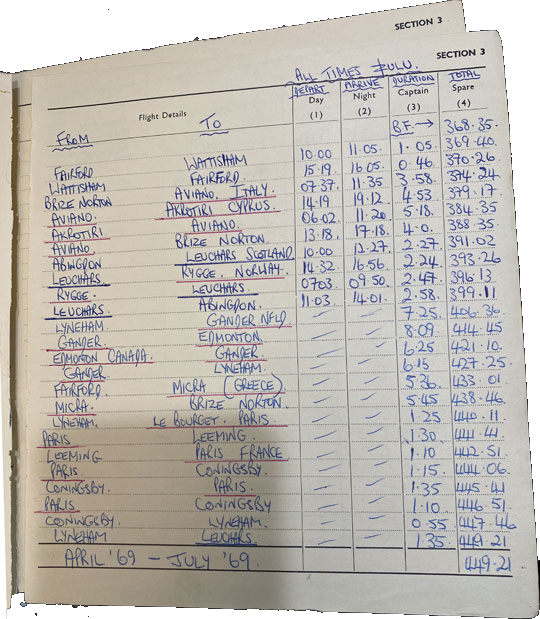 SECTION 3
SECTION 3
ALL TIMES ZULU.
DEPART ARRIVE DURATION TOTAL
Flight Details Day Night Captain Spare
(1) (2) (3) (4)
FROM TO BF → 368.35
FAIRFORD WATTISHAM 10.00 11.05. 1.05 369.40
WATTISHAM FAIRFORD. 15.19 16.05. 0.46 370.26
BRIZE NORTON AVIANO. ITALY 07.37. 11.35 3.58 374.24
AVIANO. AKROTIRI CYPRUS 14.19 19.12 4.53 379.17
AKROTIRI AVIANO. 06.02 11.20 5.18. 384.35
AVIANO. BRIZE NORTON. 13.18 17.18 4.0. 388.35
ABINGDON LEUCHARS SCOTLAND 10.00 12.27 2.27 391.02
LEUCHARS RYGGE. NORWAY. 14.32 16.56 2.24 393.26
RYGGE. LEUCHARS. 0703 09.50 2.47 396.13
LEUCHARS. ABINGDON. 11.03 14.01 2.58. 399.11
LYNEHAM GANDER NFLD 7.25 406.36
GANDER. EDMONTON. 8.09 414.45
EDMONTON CANADA. GANDER 6.25 421.10
GANDER LYNEHAM. 6.15 427.25
FAIRFORD MICRA (GREECE) 5.36 433.01
MICRA. BRIZE NORTON. 5.45 438.46
LYNEHAM. LE BOURGET. PARIS. 1.25 440.11
PARIS LEEMING. 1.30 441.41
LEEMING PARIS FRANCE 1.10 442.51
PARIS. CONINGSBY. 1.15. 444.06
CONINGSBY. PARIS. 1.35 445.41
PARIS CONINGSBY 1.10. 446.51
CONINGSBY. LYNEHAM. 0.55 447.46
LYNEHAM LEUCHARS. 1.35. 449.21
APRIL '69 — JULY '69. 449.21